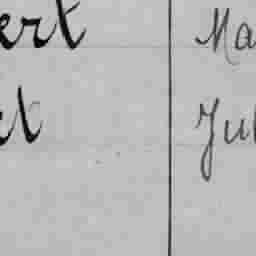 ert Ma
et Jul